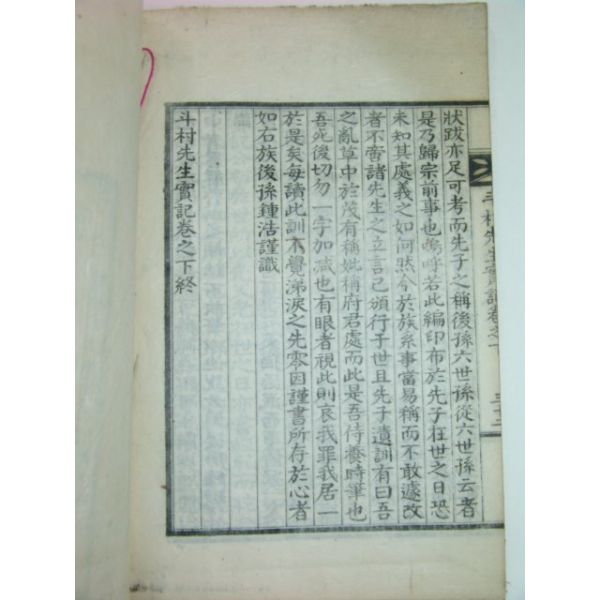 狀跋亦足可考而先子之稱後孫六世孫從六世孫云者
是乃歸宗前事也嗚呼若此編印布於先子在世之日恐
未知其處義之如何然今於族系事當易稱而不敢遽改
者不啻諸先生之立言已頒行于世且先子遺訓有曰吾
之亂草中於茂有稱妣稱府君處而此是吾侍養時筆也
吾死後切勿一字加减也有眼者視此則哀我罪我居一
於是矣每讀此訓不覺涕淚之先零因謹書所存於心者
如右族後孫鍾浩謹識
斗村先生實記卷之下終
斗村先生實記卷之下